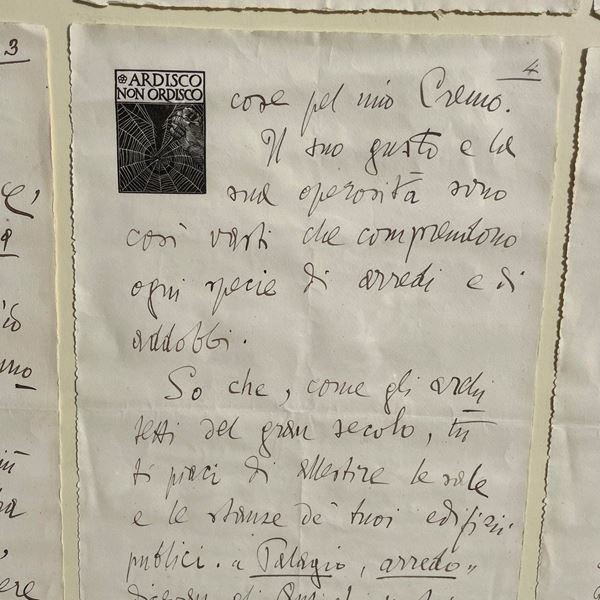 3
4
ARDISCO
NON ORDISCO
cose pel mio Cremo.
Il suo gusto e la
sua operosità sono
così vasti che comprendono
ogni specie di arredi e di
addobbi.
So che, come gli archi
tetti del gran secolo, tu
ti piaci di allestire le sale
e le stanze de' tuoi edifizii
publici. a Palagio, arredo„
dicevan gli